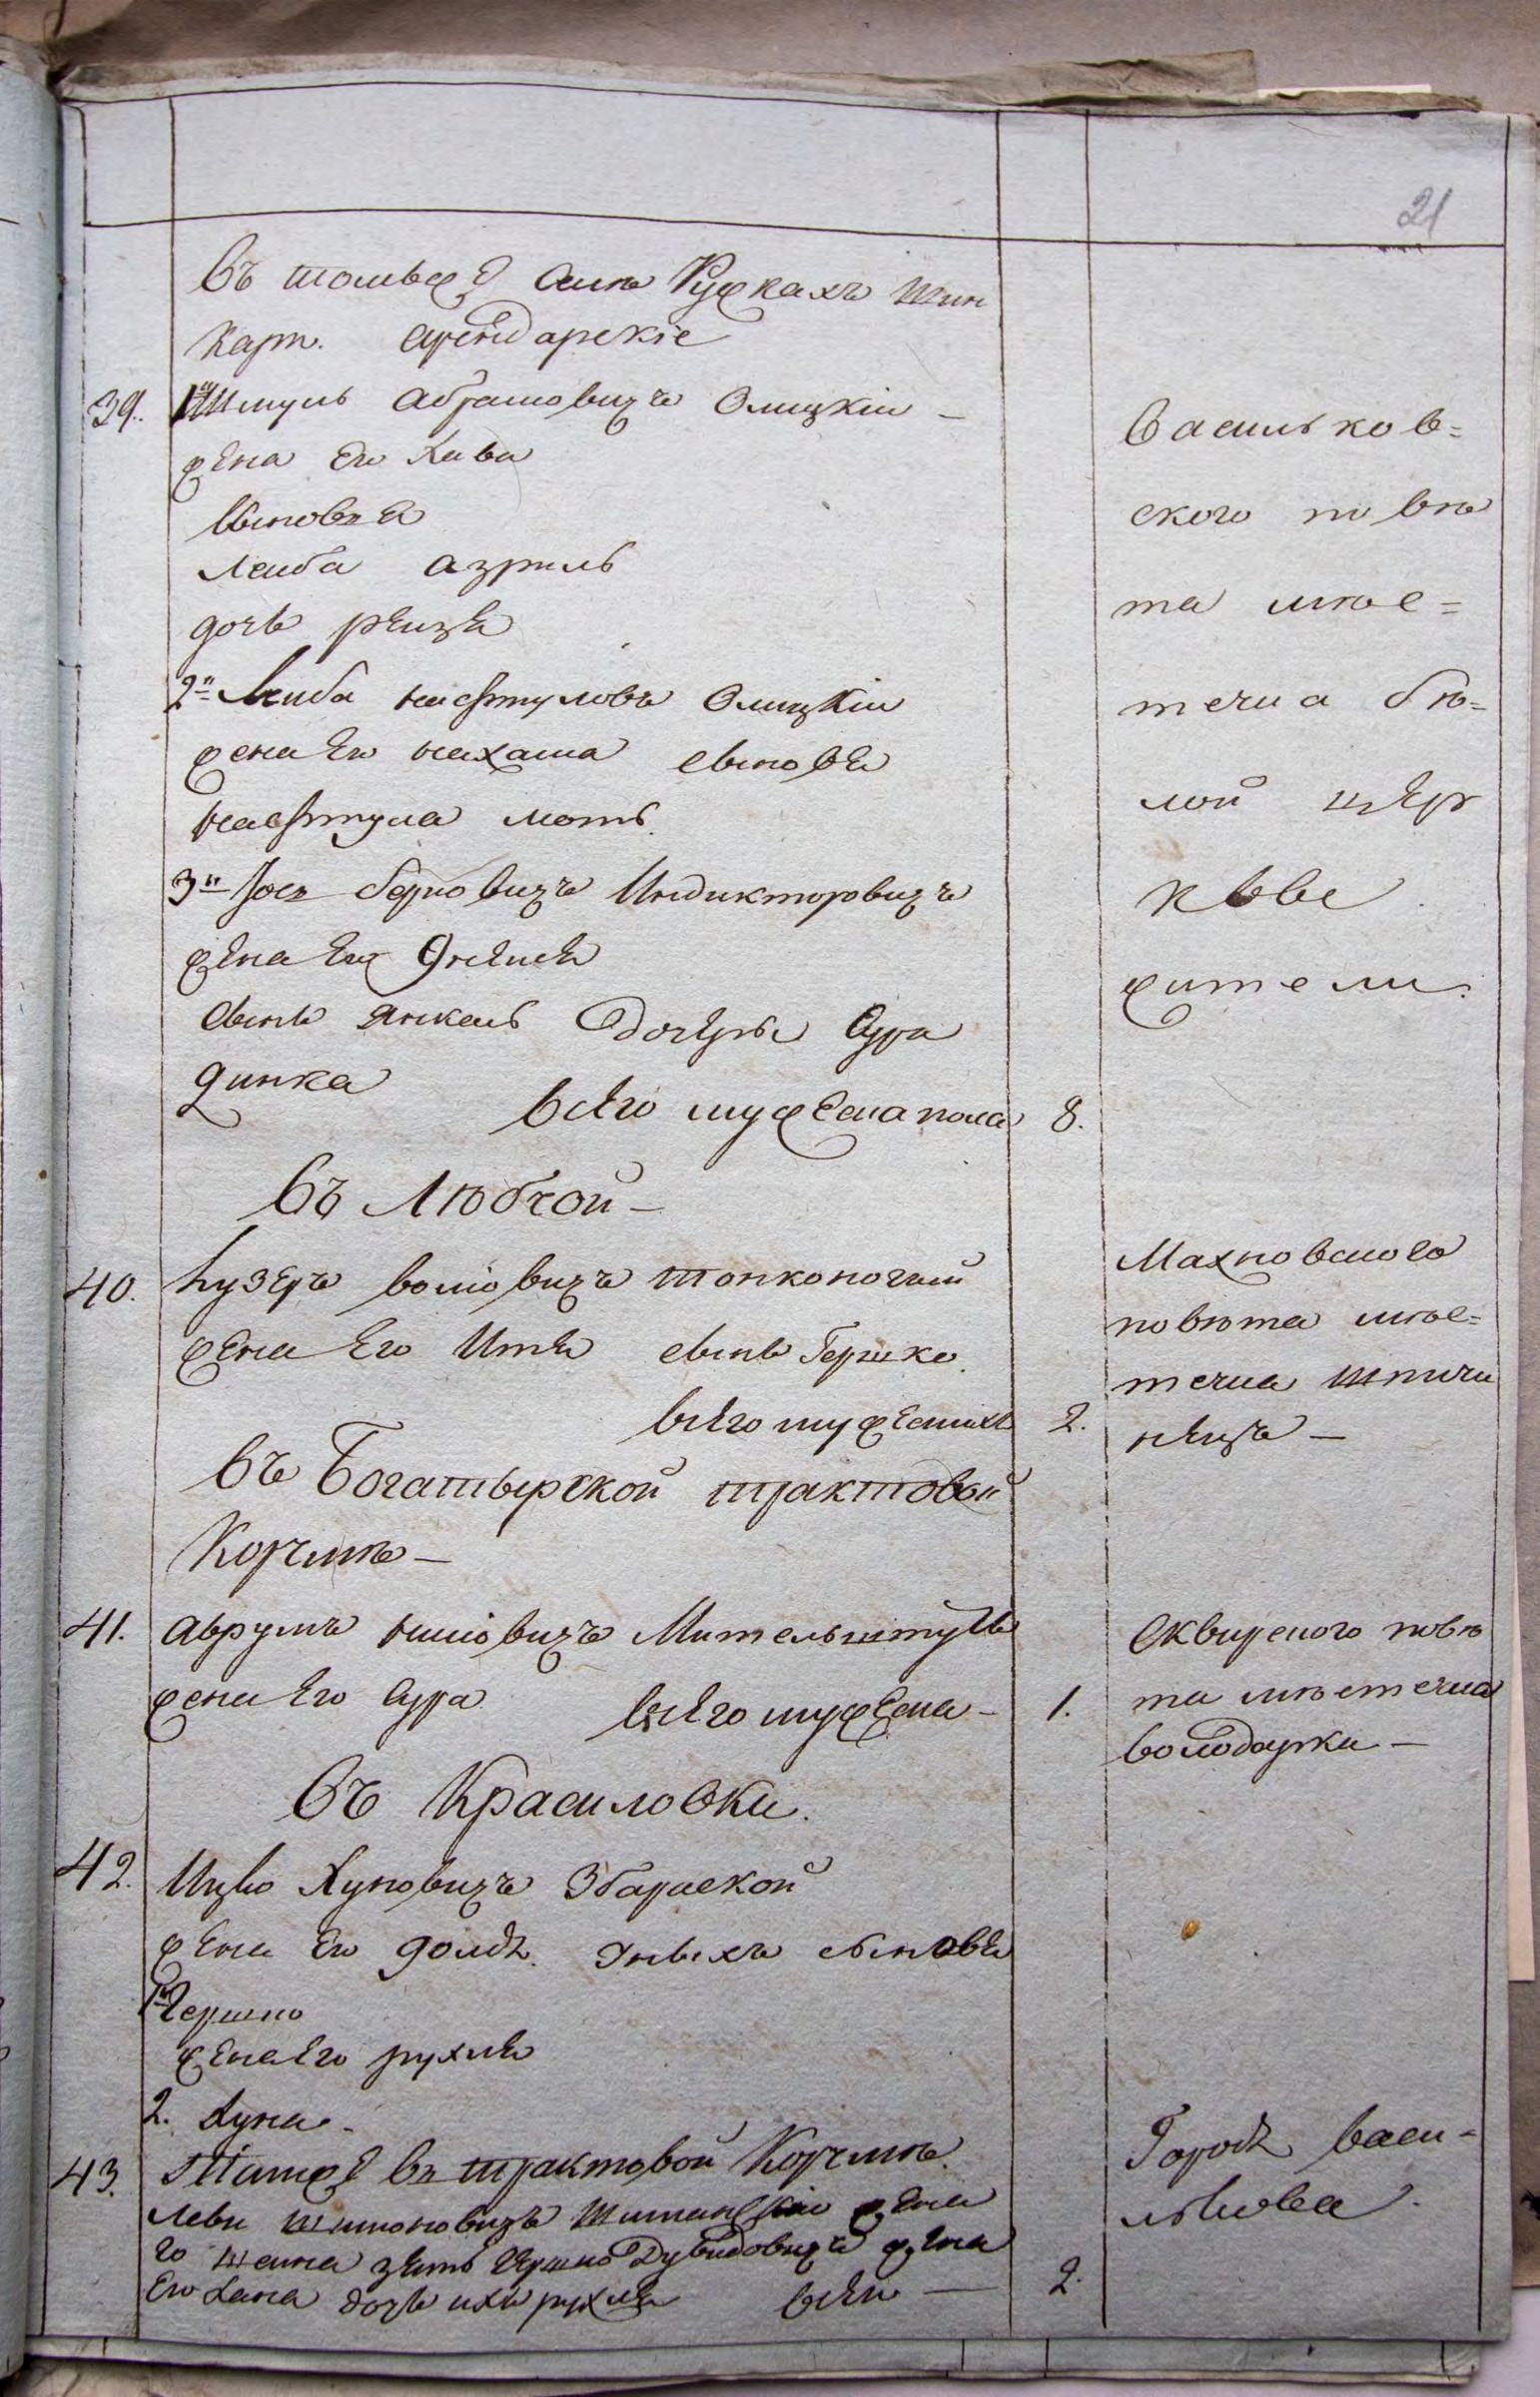 21
въ томъже Селѣ Рускахъ шин
карп. арендарскіе
39. 1й Шмуль Абрамовичъ Олицкіи —
жена Его Хава
сыновья
Леиба Азриль
дочь реизя
2й Леиба нафтуловъ Олицкіи
жена Его нахама сыновя
нафтула моть.
3й Іось беркович Индикторовичъ
жена Его
сынь янкель дочеры Сура
динка
всего мужеска пола 8.
Васильков=
ского повѣ
та мѣс=
течка бѣ=
лой цер
квы
жители.
въ Любчой —
40. Лузеръ волковичъ тонконогий
жена Его Итя сынъ Гершко.
всего мужескихъ 2.
Махновского
повѣта мѣс=
течка шпичи
нецъ —
въ Богатырской трактовой
Корчмѣ —
41. аврумъ Мительштусь
жена Его Сура всего мужеска — 1.
Сквирского повѣ
та мѣстечка
володарки —
въ Красиловки.
42. Ицко Хуновичъ Збараской
жена Его голда. Уныхъ сыновя
1й Гершко
жена Его рухля
2. Хуна —
43. Тамже въ трактовой Корчмѣ.
Леви шимоновичъ жена
го зять Гершко Дувидовичъ жена
Его Хана дочь ихъ рухля всего — 2.
Города васи=
лькова.